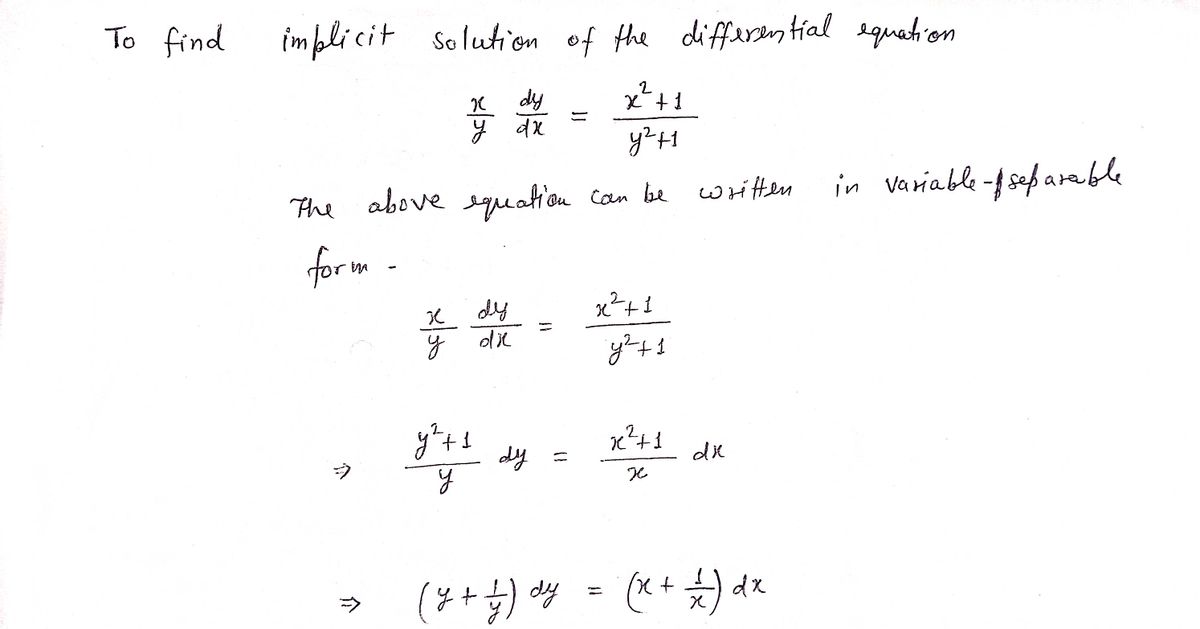 To find implicit solution of the differential equation
x/y dy/dx = x²+1/y²+1
The above equation can be written in variable-separable
form -
x/y dy/dx = x²+1/y²+1
⇒ y²+1/y dy = x²+1/x dx
⇒ (y + 1/y) dy = (x + 1/x) dx